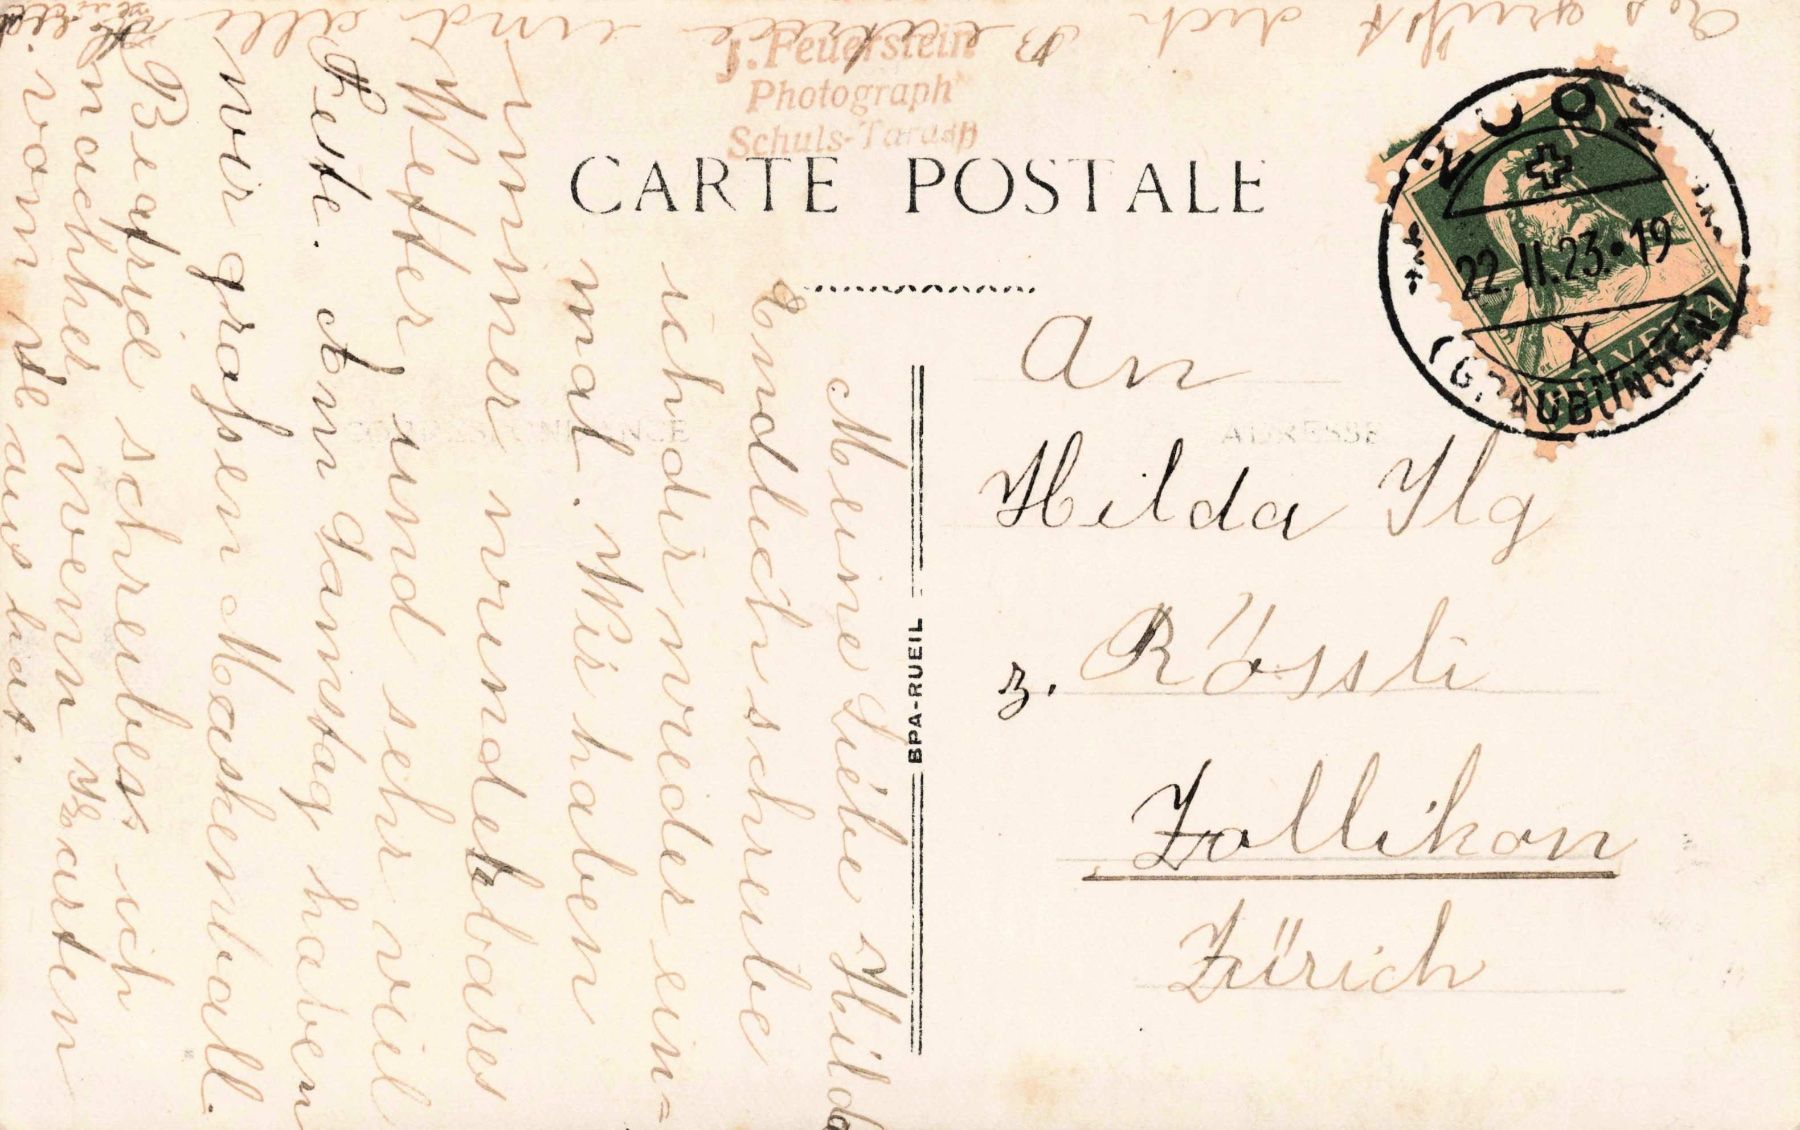 J. Feuerstein
Photograph
Schuls-Tarasp
CARTE POSTALE
CORRESPONDANCE
ADRESSE
BPA-RUEIL
ZUOZ
22.II.23.-19
X
(GRAUBÜNDEN)
HELVETIA
An
Hilda Ilg
z. Rössli
Zollikon
Zürich
Meine Liebe Hilda
Endlich schreibe
ich dir wieder ein-
mal. Wir haben
immer wunderbares
Wetter, und sehr viel
Feste. Am Samstag haben
wir grossen Maskenball.
Beatrice schreibess ich
nachher wenn Karten
vom aus hat.
Es grüsst dich Beatrice und alle